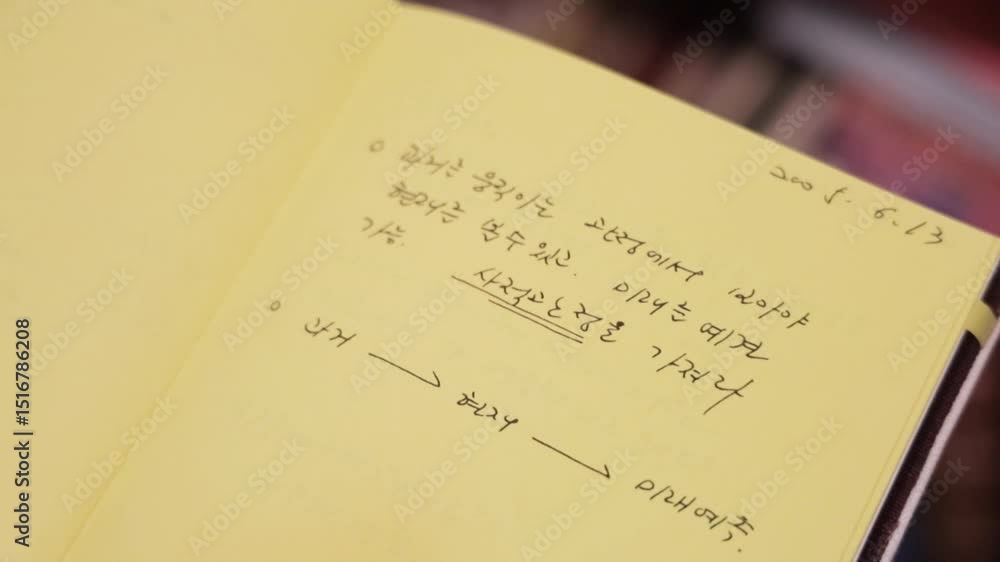 2005. 6. 13
과거는 움직이는 관점에서 보아야
현재를 볼 수 있고. 미래는 예견
가능. 사적관점을 가져라
과거 → 현재 → 미래예측.
Adobe Stock | #1516786208